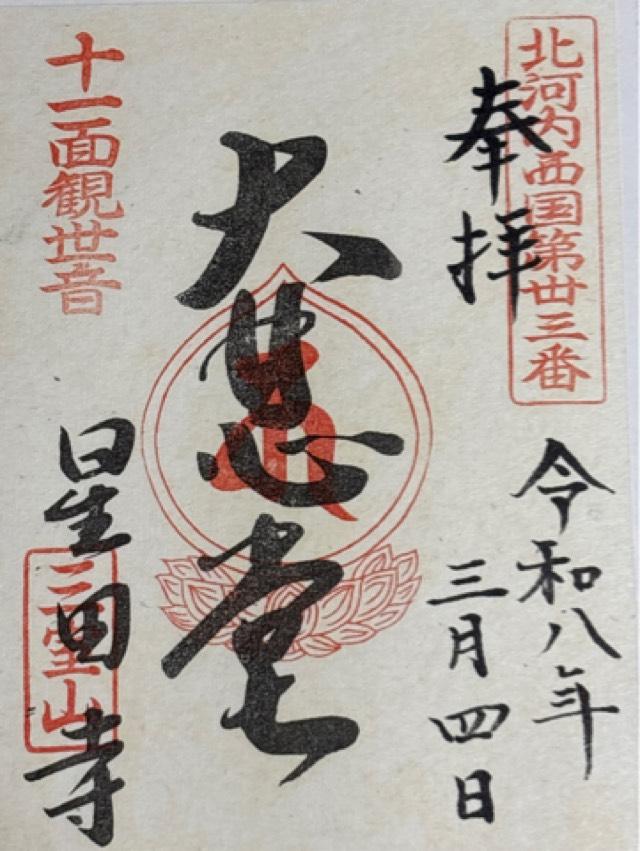 北河内西国第丗三番
奉拝
令和八年
三月四日
大悲堂
十一面観世音
星田寺
三宝山